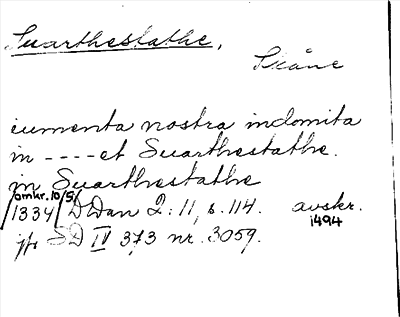 Suarthestathe,
Skåne
iumenta nostra indomita
in ----et Suarthestathe.
in Suarthestathe
omkr. 10/5
1334 DDan 2:11, s. 114. avskr.
1494
jfr SD IV 373 nr. 3059.